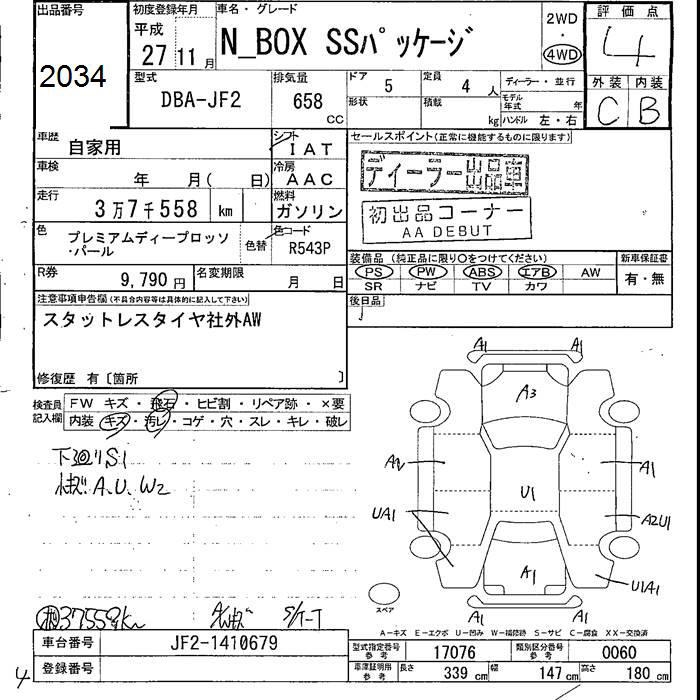 出品番号
2034
初度登録年月
平成
27 11 月
車名・グレード
N_BOX SSパッケージ
2WD
・
4WD
評価点
4
外装 内装
C B
型式
DBA-JF2
排気量
658
CC
ドア
5
定員
4 人
ディーラー・並行
形状
積載
kg
モデル年式
年
ハンドル 左・右
車歴
自家用
シフト
IAT
車検
年 月( 日)
冷房
AAC
走行
3万7千558 km
燃料
ガソリン
色
プレミアムディープロッソ
・パール
色替
色コード
R543P
R券
9,790 円
名変期限
月 日
セールスポイント(正常に機能するものに限ります)
ディーラー出品車
初出品コーナー
AA DEBUT
装備品 (純正品に限り〇をつけてください)
PS PW ABS エアB AW
SR ナビ TV カワ
新車保証書
有・無
後日品
注意事項申告欄(不具合内容等は具体的に記入して下さい)
スタットレスタイヤ社外AW
修復歴 有〔箇所 〕
検査員
記入欄
FW キズ・飛石・ヒビ割・リペア跡・×要
内装 キズ・汚レ・コゲ・穴・スレ・キレ・破レ
下廻リS1
A、U、W2
A1 A1
A3
A2 A1
U1
UA1 A2U1
A1 U1A1
A1 A1
スペア
37558km
A-キズ E-エクボ U-凹み W-補修跡 S-サビ C-腐食 XX-交換済
車台番号
JF2-1410679
登録番号
4
型式指定番号
参考
17076
類別区分番号
参考
0060
車庫証明用
参考
長さ 339 cm
幅 147 cm
高さ 180 cm